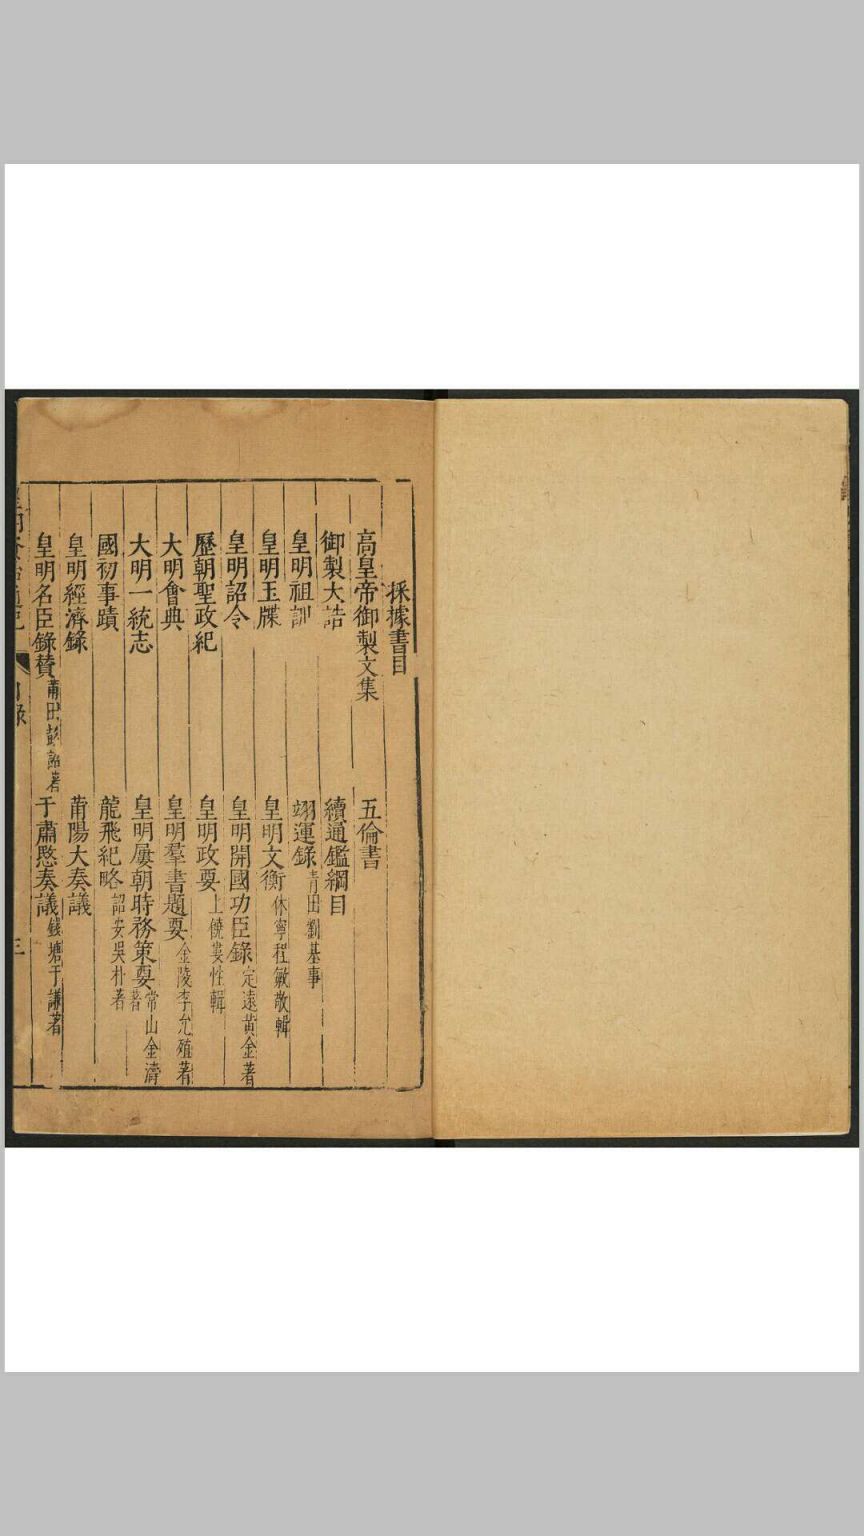 採據書目
高皇帝御製文集 五倫書
御製大誥 續通鑑綱目
皇明祖訓 翊運錄 青田劉基事
皇明玉牒 皇明文衡 休寧程敏政輯
皇明詔令 皇明開國功臣錄 定遠黃金著
歷朝聖政紀 皇明政要 上饒婁性輯
大明會典 皇明羣書題要 金陵李允殖著
大明一統志 皇明屢朝時務策要 常山金濤著
國初事蹟 龍飛紀略 詔安吳朴著
皇明經濟錄 莆陽大奏議
皇明名臣錄贊 莆田彭韶著 于肅愍奏議 錢塘于謙著
三